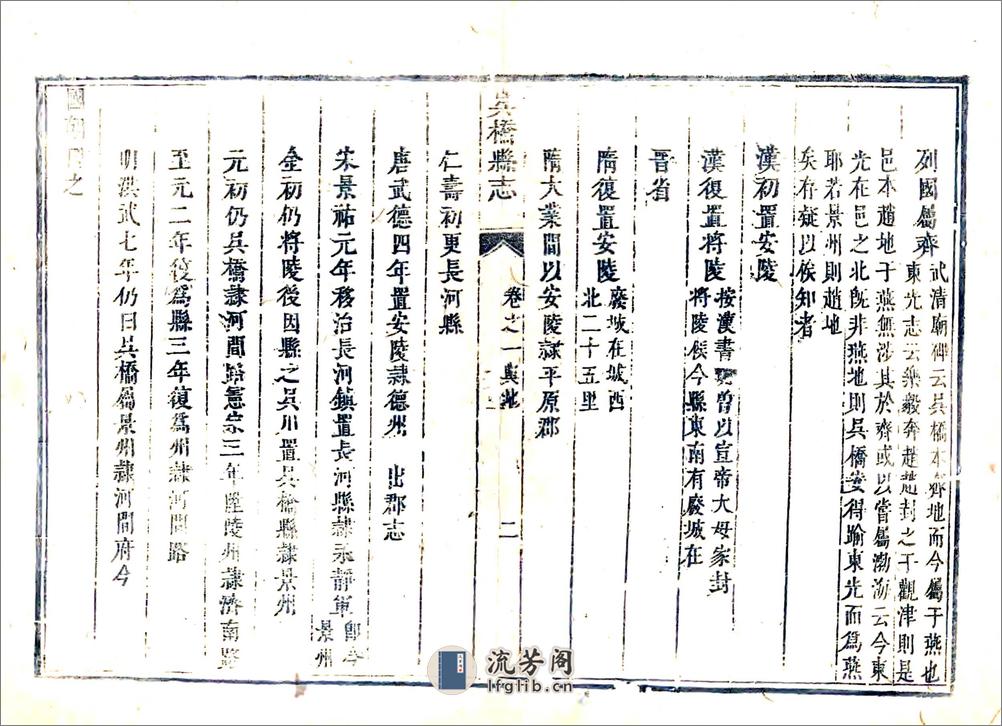 列國屬齊武清廟碑云吳橋本齊地而今屬于燕也
東光志云樂毅奔趙趙封之于觀津則是
邑本趙地于燕無涉其於齊或以嘗屬渤海云今東
光在邑之北旣非燕地則吳橋安得踰東光而爲燕
耶若景州則趙地
矣存疑以俟知者
漢初置安陵
漢復置將陵按漢書 曾以宣帝大母家封
將陵侯今縣東南有廢城在
晋省
隋復置安陵廢城在城西
北二十五里
隋大業間以安陵隷平原郡
吳橋縣志
卷之一輿地
二
仁壽初更長河縣
唐武德四年置安陵隷德州 出郡志
宋景祐元年移治長河鎮置長河縣隷永靜軍卽今
景州
金初仍將陵後因縣之吳川置吳橋縣隷景州
元初仍吳橋隷河間路憲宗三年陞陵州隷濟南路
至元二年復爲縣三年復爲州隷河間路
明洪武七年仍曰吳橋屬景州隷河間府今
國朝因之
流芳阁
lfglib.cn